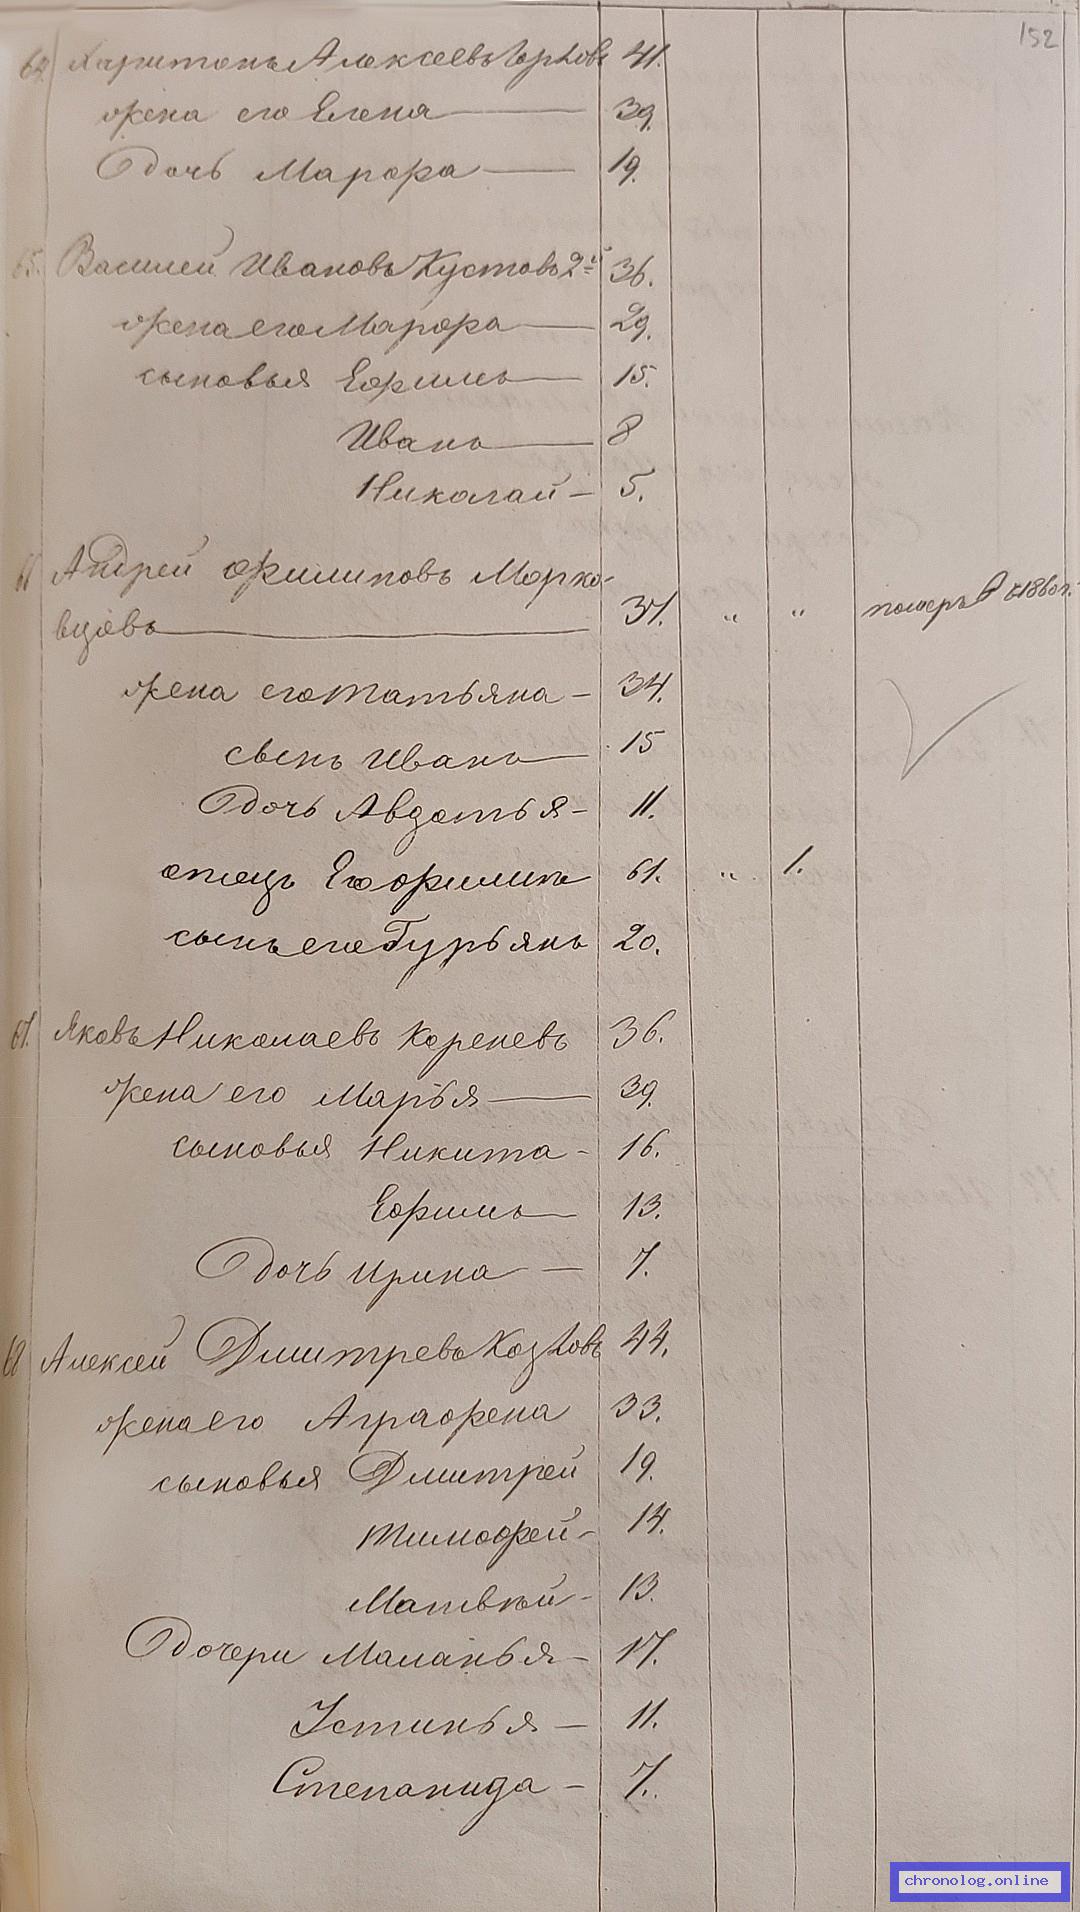 152
64. Харитонъ Алексеевъ Горловъ 41.
жена его Елена 39.
Дочь Марфа 19.
65. Василей Ивановъ Кустовъ 2й 36.
жена его Марфа 29.
сыновья Ефимъ 15.
Иванъ 8
Николай 5.
66 Андрей Филиповъ Морко-
вцовъ 37. " " померъ в 1860 г.
жена его Татьяна 34.
сынъ Иванъ 15
Дочь Авдотья 11.
отецъ Его Филипъ 61. " 1.
сынъ его Гурьянъ 20.
67. Яковъ Николаевъ Кореневъ 36.
жена его Марья 39.
сыновья Никита 16.
Ефимъ 13.
Дочь Ирина 7.
68 Алексей Дмитревъ Козловъ 44.
жена его Аграфена 33.
сыновья Дмитрей 19.
Тимофей 14.
Матвѣй 13.
Дочери Маланья 17.
Устинья 11.
Степанида 7.
chronolog.online